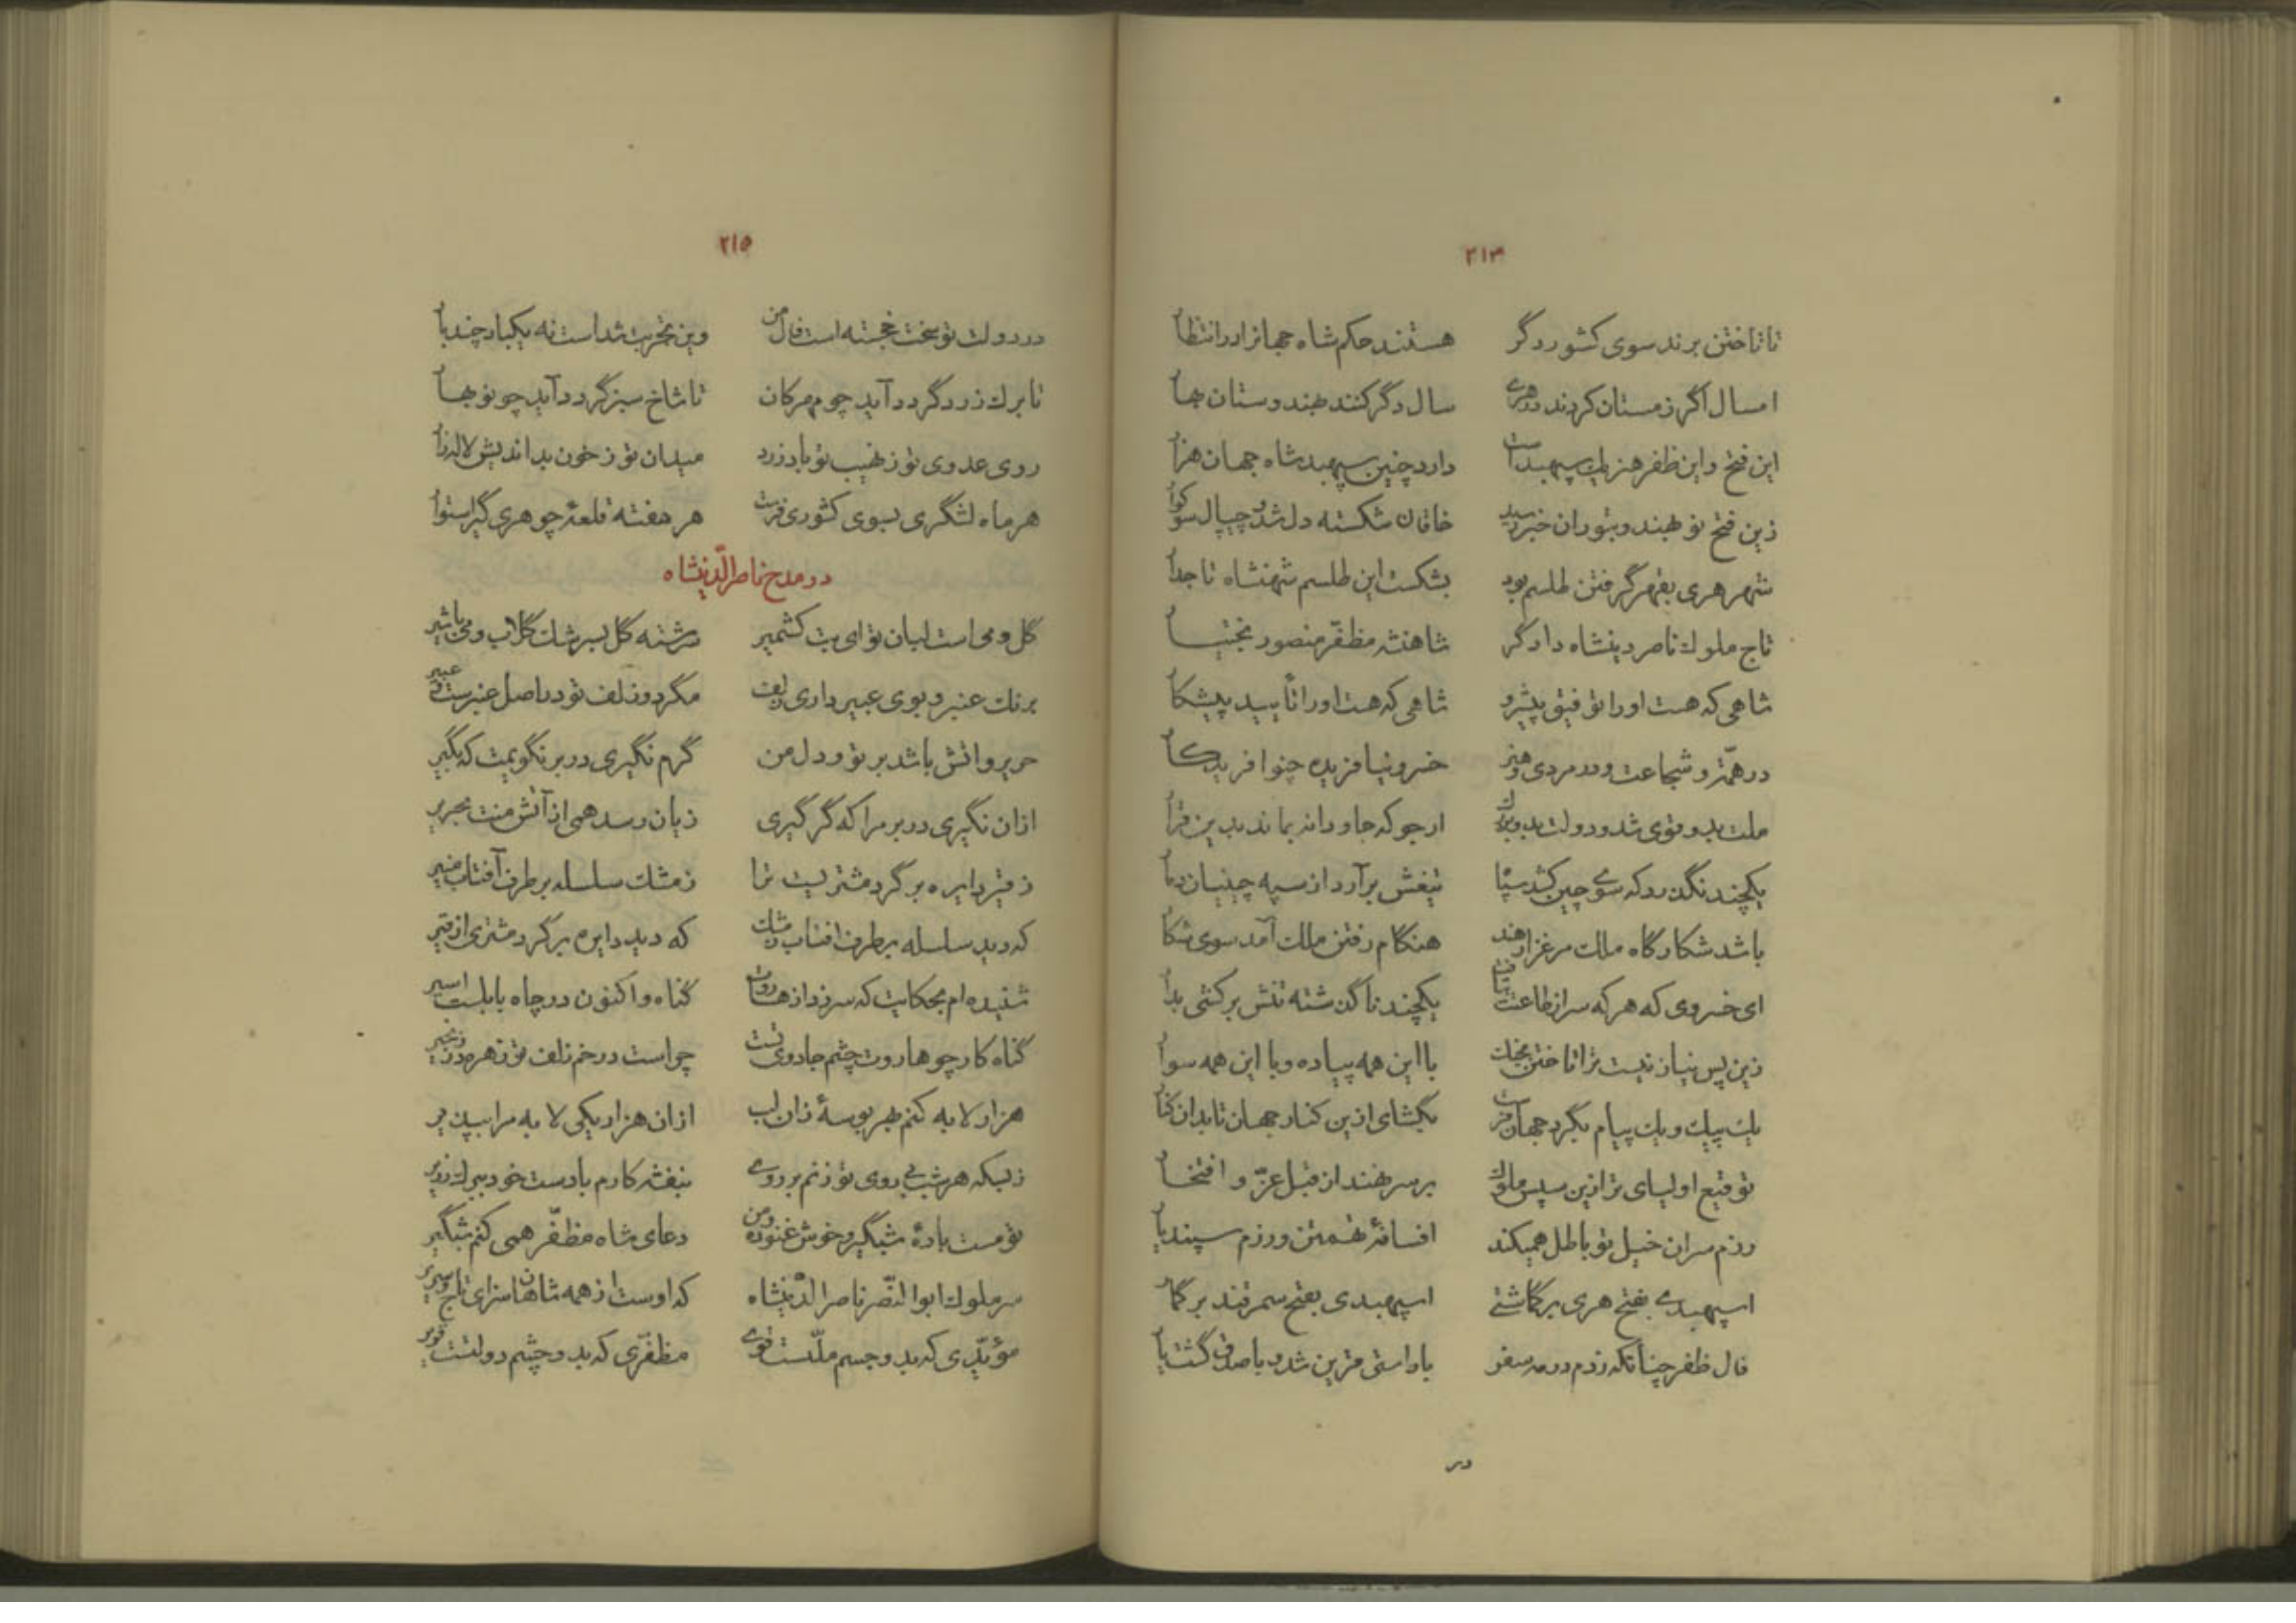 ۲۱۴
تا تاختن برند سوی کشور دگر هستند حکم شاه جهانرا در انتظار
امسال اگر زمستان کردند در هری سال دگر کنند بهندوستان بهار
این فتح و این ظفر هنر یك سپهبد است دارد چنین سپهبد شاه جهان هزار
زین فتح نو بهند و بتوران خبر رسید خاقان شکسته دل شد و چیپال سوکوار
شهر هری بقهر گرفتن طلسم بود بشکست این طلسم شهنشاه تاجدار
تاج ملوك ناصر دینشاه دادگر شاهنشه مظفّر منصور بختیار
شاهی که هست او را توفیق پیشرو شاهی که هست او را تأیید پیشکار
در همّت و شجاعت و در مردی و هنر خسرو نیافریده چنو آفریدگار
ملت بدو قوی شد و دولت بدو بزرك ارجو که جاودانه بماند بدین قرار
یکچند نگذرد که سوی چین کشد سپاه تیغش برآرد از سپه چینیان دمار
باشد شکارگاه ملك مرغزار هند هنگام رفتن ملك آمد سوی شکار
ای خسروی که هر که سر از طاعتت بتافت یکچند ناگذشته تنش برکشی بدار
زین پس نیاز نیست ترا تاختن بجنك با این همه پیاده و با این همه سوار
یك پیك و یك پیام بگرد جهان فرست بگشای ازین کنار جهان تا بدان کنار
توقیع اولیای ترا زین سپس ملوك بر سر نهند از قبل عزّ و افتخار
رزم سران خیل تو باطل همیکند افسانهٔ تهمتن و رزم سپندیار
اسپهبدی بفتح هری برگماشتی اسپهبدی بفتح سمرقند برگمار
فال ظفر چنانکه زدم در مه سفر با راستی قرین شد و با صدق گشت یار
در
۲۱۵
در دولت تو سخت خجسته است فال من وین تجربت شداست نه یکبار چند بار
تا برك زرد گردد آید چو مهرکان تا شاخ سبز گردد آید چو نوبهار
روی عدوی تو ز نهیب تو باد زرد میدان تو ز خون بداندیش لاله‌زار
هر ماه لشگری بسوی کشوری فرست هر هفته قلعهٔ چو هری گیر استوار
در مدح ناصرالدّینشاه
گل و می است لبان تو ای بت کشمیر سرشته گل بسرشك گلاب و می باشیر
برنك عنبر و بوی عبیر داری زلف مگر دو زلف تو در اصل عنبرست و عبیر
حریر و اتش باشد بر تو و دل من گرم نگیری در بر نگویمت که بگیر
ازان نگیری در بر مرا که گر گیری زیان رسد همی از آتش منت بحریر
ز قیر دایره بر گرد مشتریست ترا ز مشك سلسله بر طرف آفتاب منیر
که دید سلسله بر طرف افتاب ز مشك که دید دایره بر گرد مشتری از قیر
شنیده‌ام بحکایت که سر زد از هاروت گناه و اکنون در چاه بابلست اسیر
گناه کار چو هاروت چشم جادوی تست چراست در خم زلف تو زهره در زنجیر
هزار لابه کنم بهر بوسهٔ زان لب ازان هزار یکی لابه مرا بپذیر
ز بسکه هر شب بی روی تو زنم بر روی بنفشه کارم با دست خود ببرك زریر
تو مست بادهٔ شبگیر و خوش غنوده و من دعای شاه مظفّر همی کنم شبگیر
سر ملوك ابوالنّصر ناصرالدّینشاه که اوست از همه شاهان سزای تاج و سریر
مؤیّدی که بدو جسم ملّتست قوی مظفّری که بدو چشم دولتست قریر